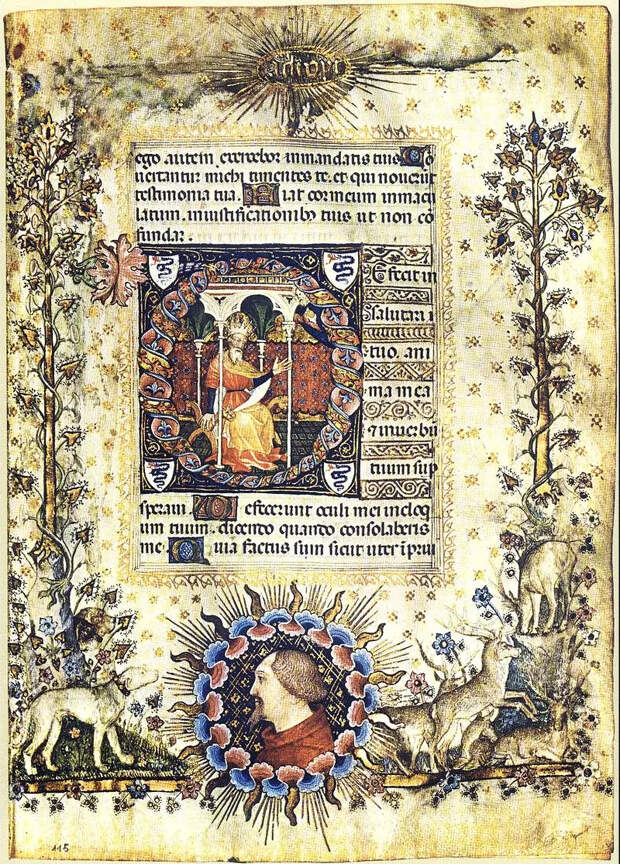 ego autem exercebor inmandatis tuis Co
uertantur michi timentes te. et qui nouerūt
testimonia tua. Fiat cor meum inmacu
latum. iniustificationib; tuis ut non cō
fundar.
Defecit in
salutari
tuo. ani
ma mea
& inuerbū
tuum sup
speraui. Defecerunt oculi mei ineloq
um tuum. dicendo quando consolaberis
me Quia factus sum sicut uter ī prui
115